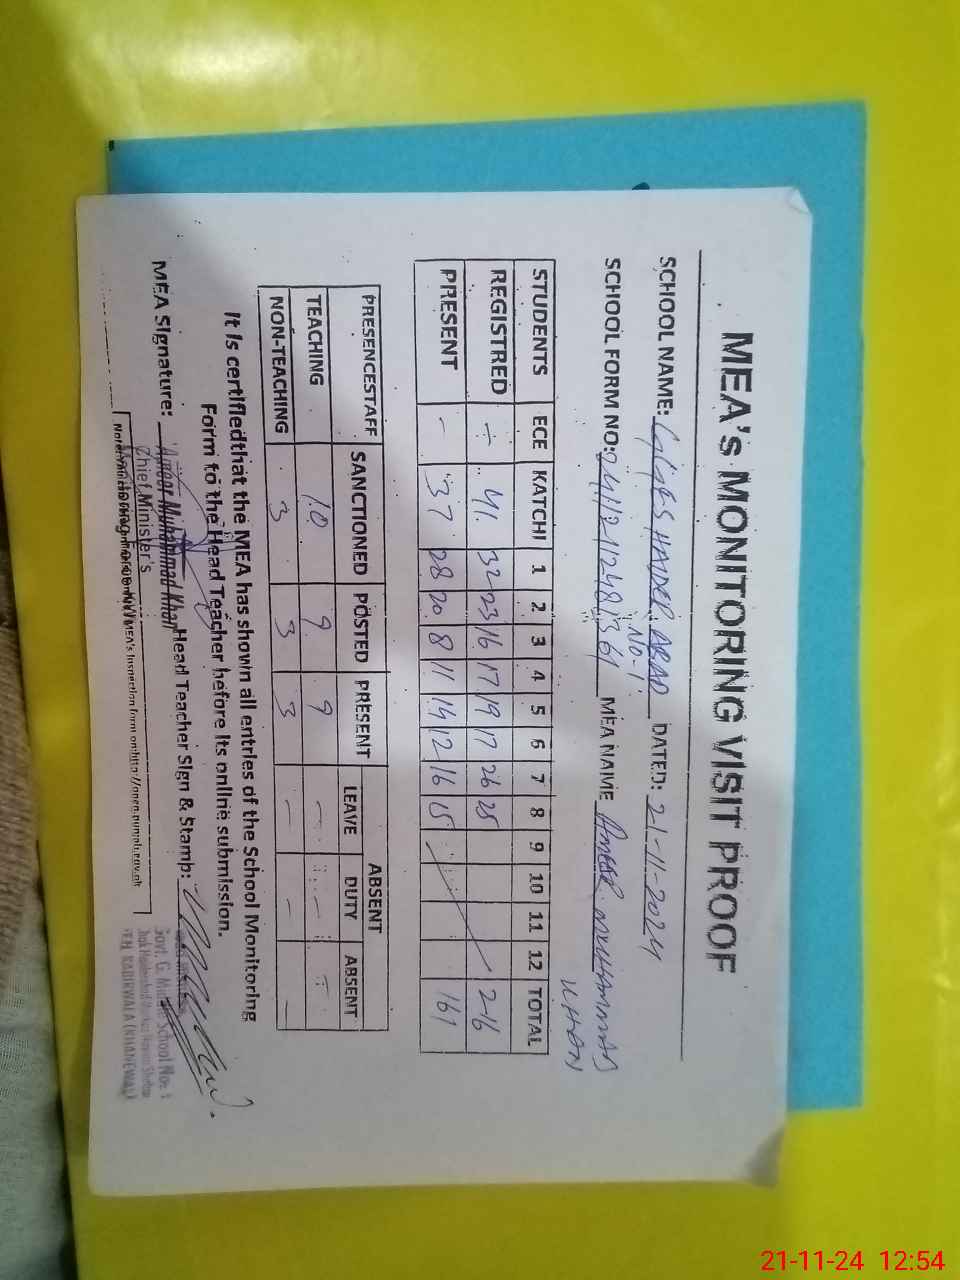 MEA's MONITORING VISIT PROOF
SCHOOL NAME: GGMES HAIDER ABAD No-1 DATED: 21-11-2024
SCHOOL FORM NO: MEA NAME Ameer MUHAMMAD KHAN
STUDENTS ECE KATCHI 1 2 3 4 5 6 7 8 9 10 11 12 TOTAL
REGISTRED - 41 32 23 16 17 19 17 26 25 216
PRESENT - 37 28 20 8 11 14 12 16 15 161
PRESENCESTAFF SANCTIONED POSTED PRESENT ABSENT
LEAVE DUTY ABSENT
TEACHING 10 9 9 - - -
NON-TEACHING 3 3 3 - - -
It is certifiedthat the MEA has shown all entries of the School Monitoring
Form to the Head Teacher before its online submission.
MEA Signature: Head Teacher Sign & Stamp:
Ameer Muhammad Khan
Chief Minister's
Govt. G. School No. 1
KABIRWALA (KHANEWAL)
MEA's Inspection form on
21-11-24 12:54